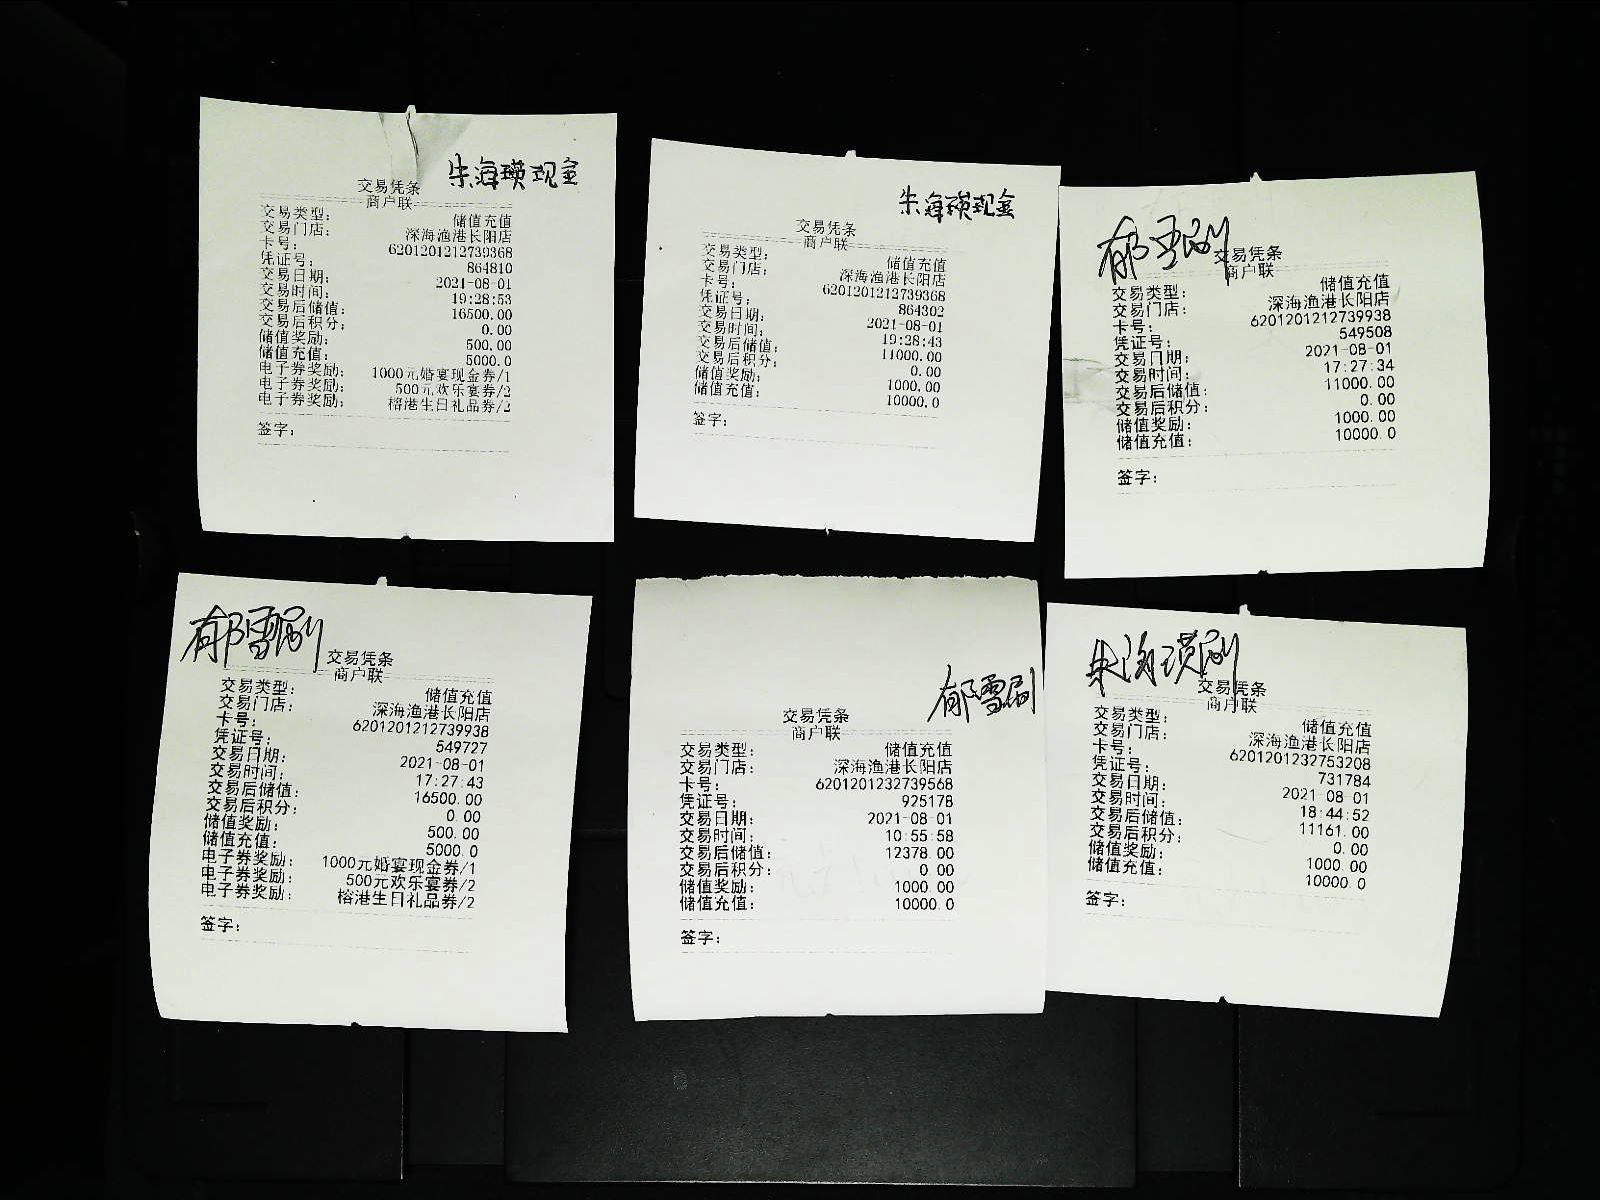 朱海瑛现金
交易凭条
商户联
交易类型： 储值充值
交易门店： 深海渔港长阳店
卡号： 6201201212739368
凭证号： 864810
交易日期： 2021-08-01
交易时间： 19:28:53
交易后储值： 16500.00
交易后积分： 0.00
储值奖励： 500.00
储值充值： 5000.0
电子券奖励： 1000元婚宴现金券/1
电子券奖励： 500元欢乐宴券/2
电子券奖励： 榕港生日礼品券/2
签字：
朱海瑛现金
交易凭条
商户联
交易类型： 储值充值
交易门店： 深海渔港长阳店
卡号： 6201201212739368
凭证号： 864302
交易日期： 2021-08-01
交易时间： 19:28:43
交易后储值： 11000.00
交易后积分： 0.00
储值奖励： 1000.00
储值充值： 10000.0
签字：
郁雪刷
交易凭条
商户联
交易类型： 储值充值
交易门店： 深海渔港长阳店
卡号： 6201201212739938
凭证号： 549508
交易日期： 2021-08-01
交易时间： 17:27:34
交易后储值： 11000.00
交易后积分： 0.00
储值奖励： 1000.00
储值充值： 10000.0
签字：
郁雪刷
交易凭条
商户联
交易类型： 储值充值
交易门店： 深海渔港长阳店
卡号： 6201201212739938
凭证号： 549727
交易日期： 2021-08-01
交易时间： 17:27:43
交易后储值： 16500.00
交易后积分： 0.00
储值奖励： 500.00
储值充值： 5000.0
电子券奖励： 1000元婚宴现金券/1
电子券奖励： 500元欢乐宴券/2
电子券奖励： 榕港生日礼品券/2
签字：
郁雪刷
交易凭条
商户联
交易类型： 储值充值
交易门店： 深海渔港长阳店
卡号： 6201201232739568
凭证号： 925178
交易日期： 2021-08-01
交易时间： 10:55:58
交易后储值： 12378.00
交易后积分： 0.00
储值奖励： 1000.00
储值充值： 10000.0
签字：
朱海瑛刷
交易凭条
商户联
交易类型： 储值充值
交易门店： 深海渔港长阳店
卡号： 6201201232753208
凭证号： 731784
交易日期： 2021-08-01
交易时间： 18:44:52
交易后储值： 11161.00
交易后积分： 0.00
储值奖励： 1000.00
储值充值： 10000.0
签字：